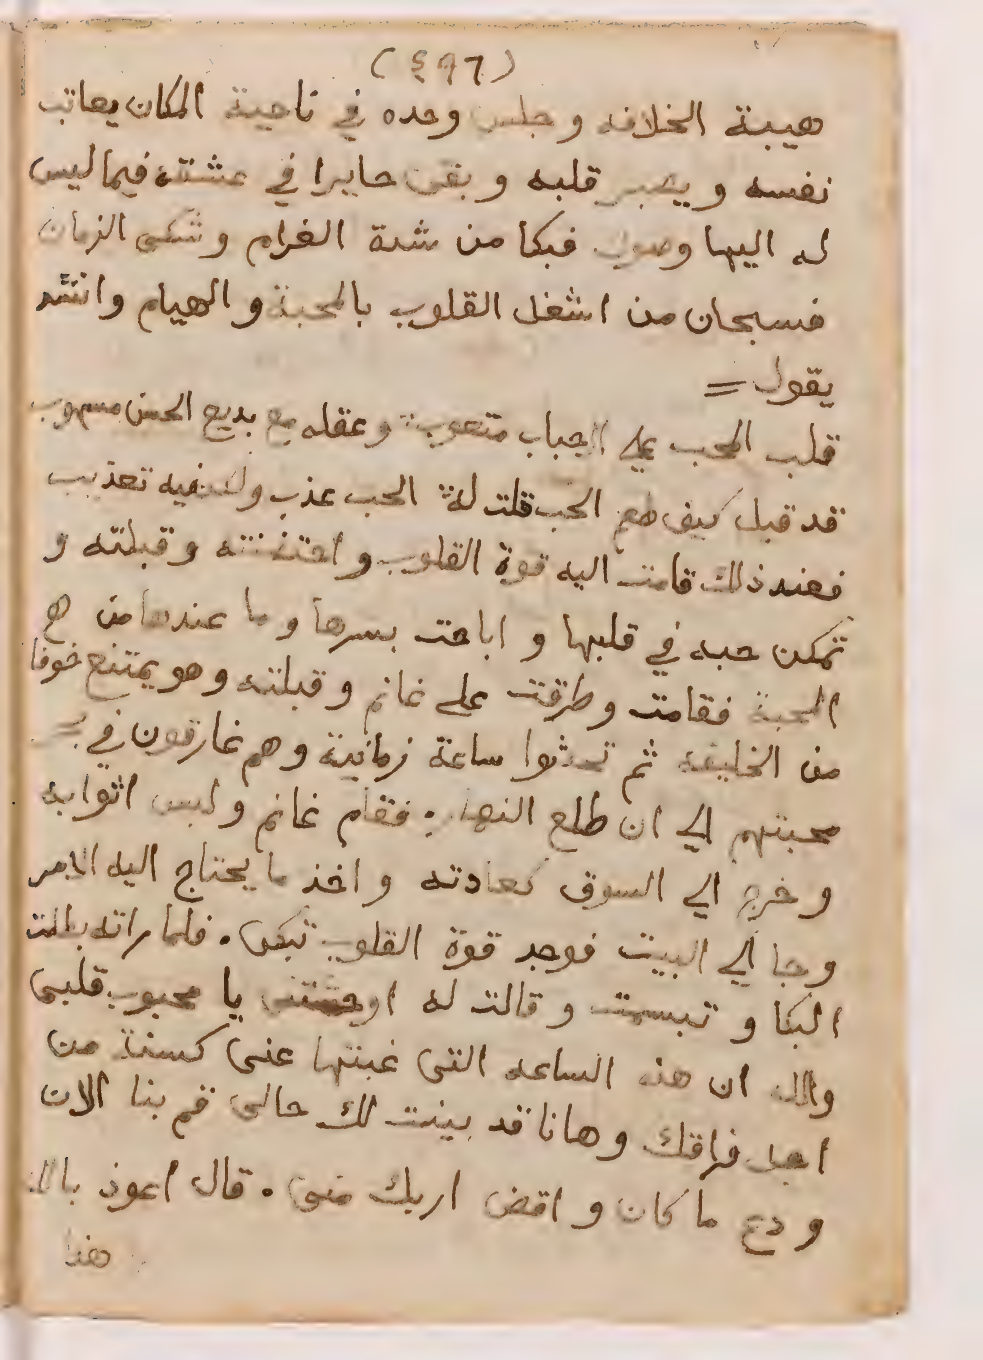 (٤٩٦)
هيبة الخلافه و جلس وحده في ناحية المكان يعاتب
نفسه و يصبر قلبه و بقى حايرا في عشقته فيما ليس
له اليها وصول فبكا من شدة الغرام و شكى الزمان
فسبحان من اشغل القلوب بالمحبة و الهيام و انشد
يقول =
قلب المحب على الاحباب متعوب وعقله مع بديع الحسن مسهوب
قد قيل كيف طعم الحب قلت له الحب عذب ولكن فيه تعذيب
فعند ذلك قامت اليه قوة القلوب و احتضنته و قبلته و
تمكن حبه في قلبها و اباحت بسرها و ما عندها من
المحبة فقامت و طرقت على غانم و قبلته و هو يمتنع خوفا
من الخليفه ثم تحدثوا ساعة زمانية و هم غارقون في بحر
محبتهم الي ان طلع النهار . فقام غانم و لبس اثوابه
و خرج الي السوق كعادته و اخذ ما يحتاج اليه الامر
و جا الي البيت فوجد قوة القلوب تبكى . فلما راته بطلت
البكا و تبسمت و قالت له اوحشتنى يا محبوب قلبى
والله ان هذه الساعه التى غبتها عنى كسنة من
اجل فراقك و هانا قد بينت لك حالى قم بنا الان
و دع ما كان و اقض اربك منى . قال اعوذ بالله
هذا